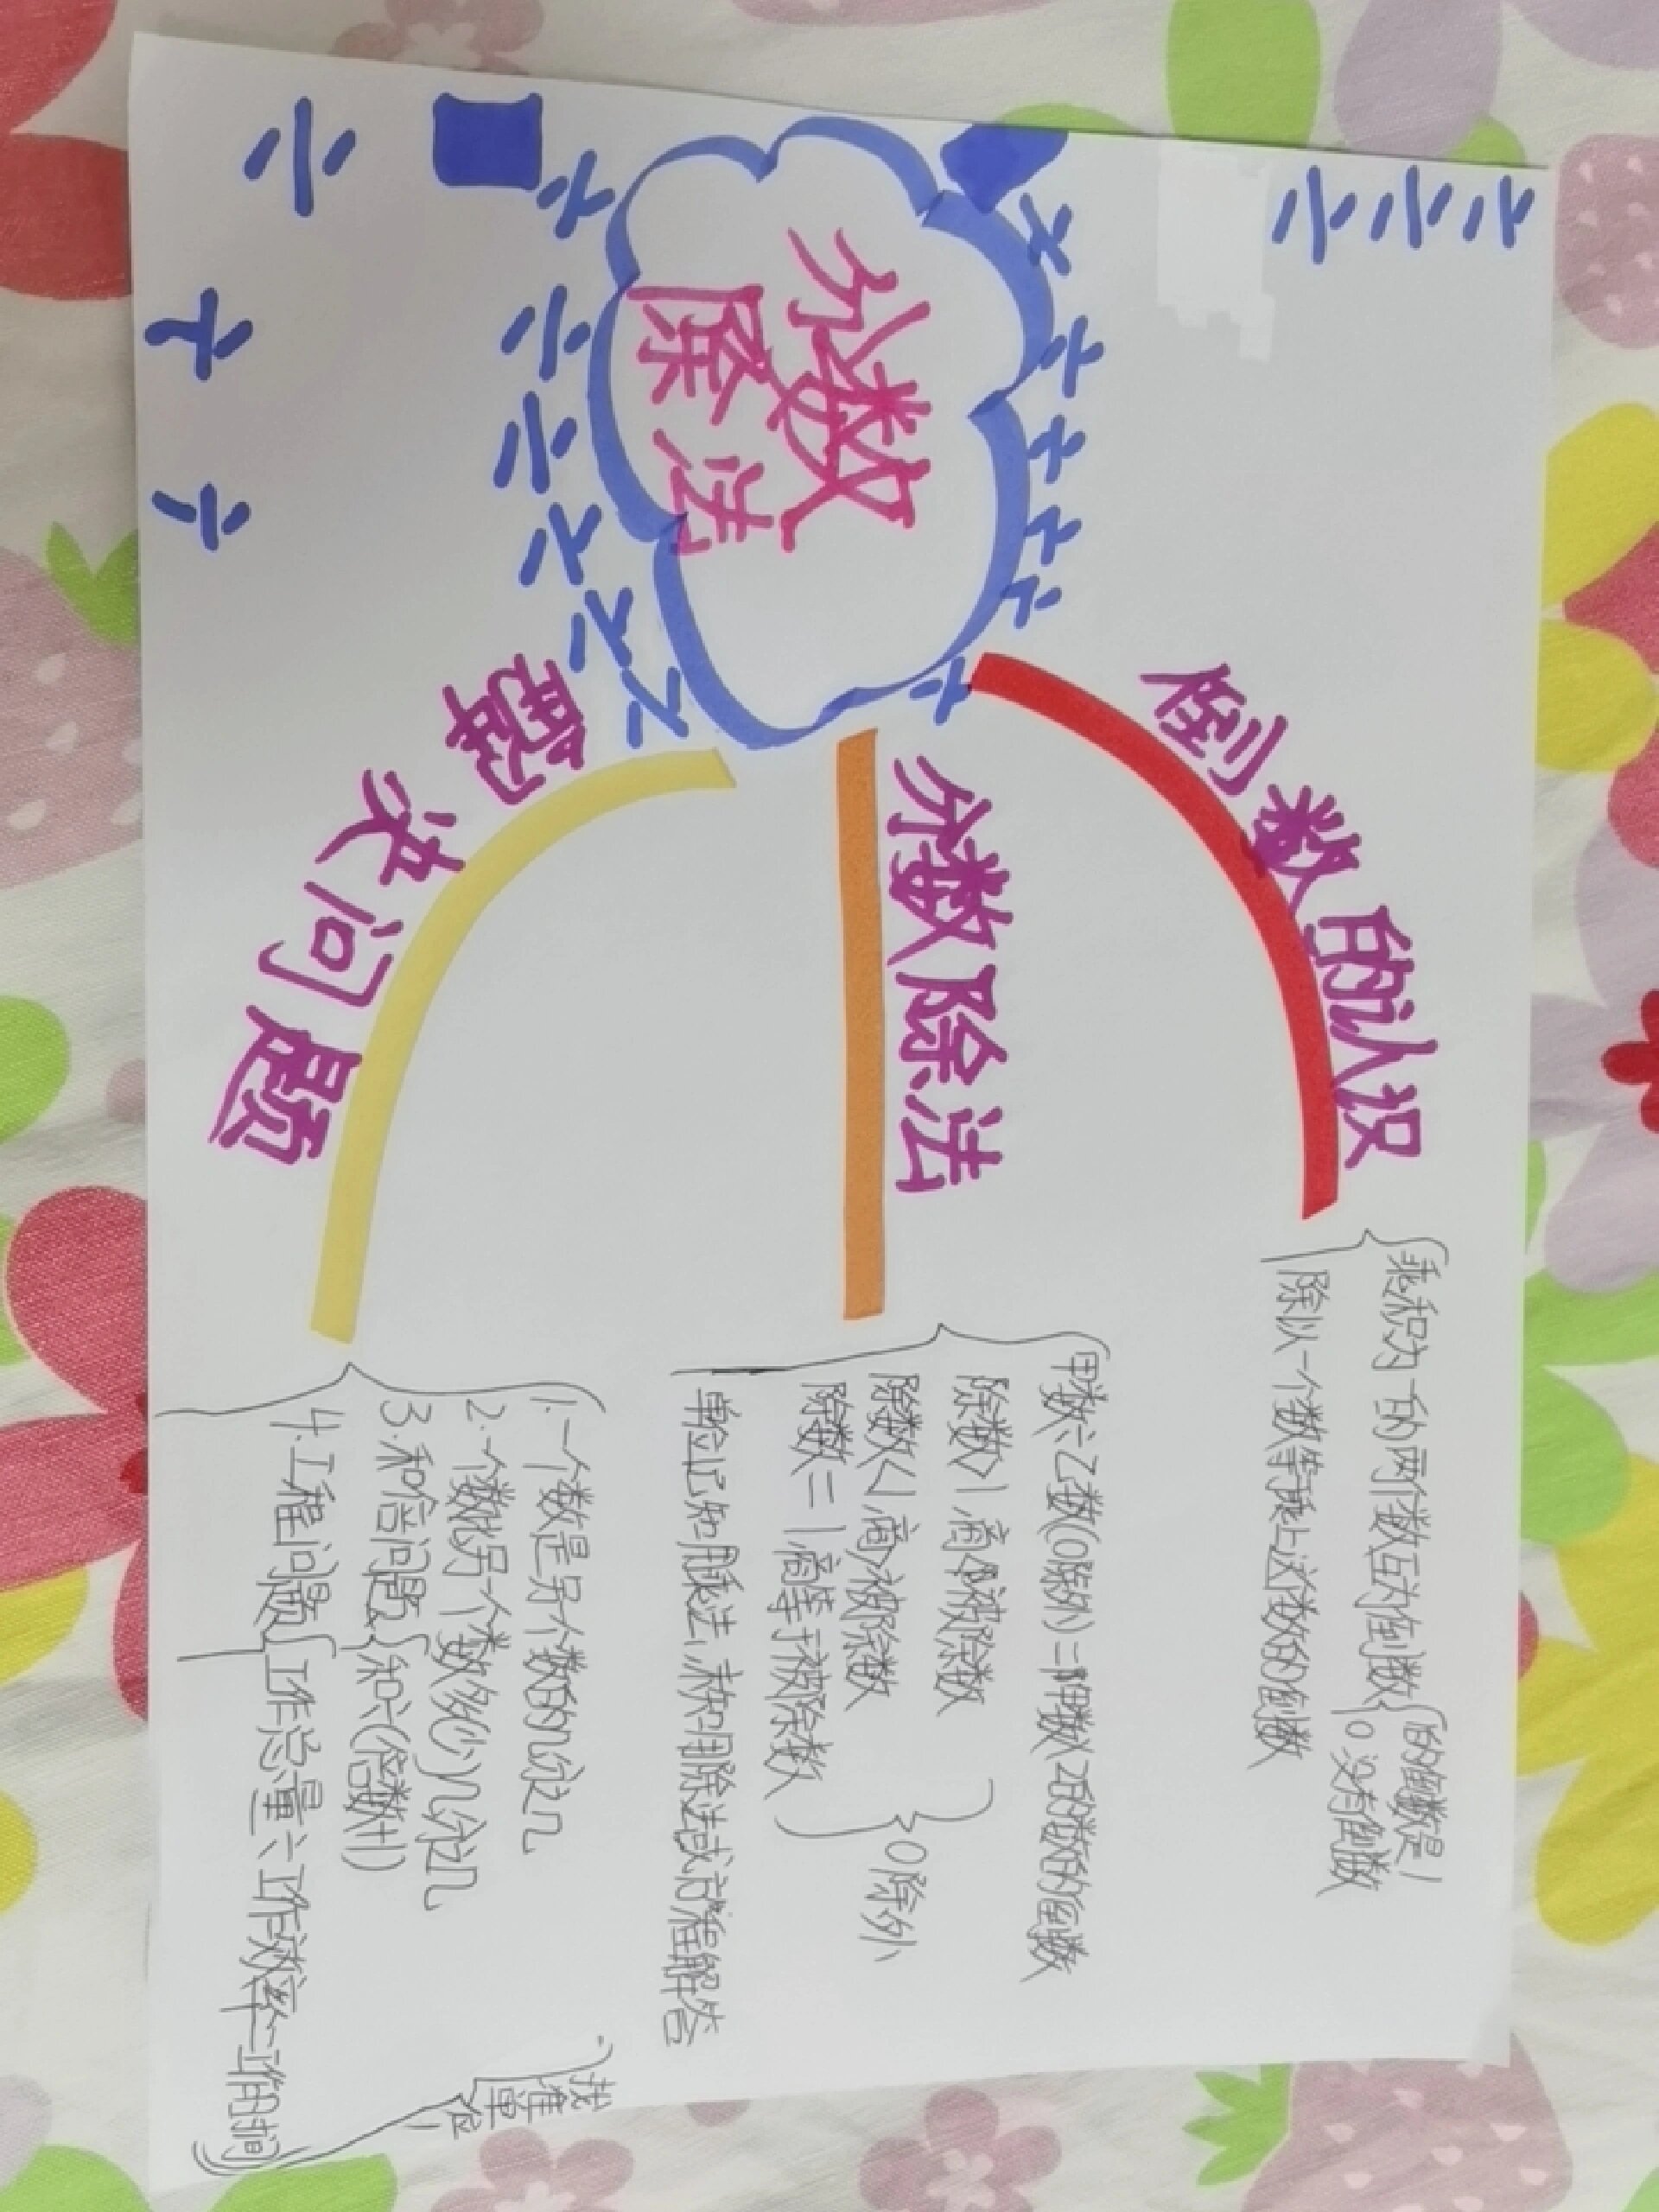 分数
除法
倒数的认识
乘积为1的两个数互为倒数
1的倒数是1
0没有倒数
除以一个数等于乘上这个数的倒数
分数除法
甲数÷乙数(0除外)=甲数×乙的数的倒数
除数>1 商<被除数
除数<1 商>被除数
除数=1 商等于被除数
0除外
单位1已知用乘法,未知用除法或方程解答
解决问题
1.一个数是另个数的几分之几
2.个数比另一个数多(少)几分之几
3.和倍问题 和÷(倍数+1)
4.工程问题 工作总量÷工作效率=工作时间
找准单位1